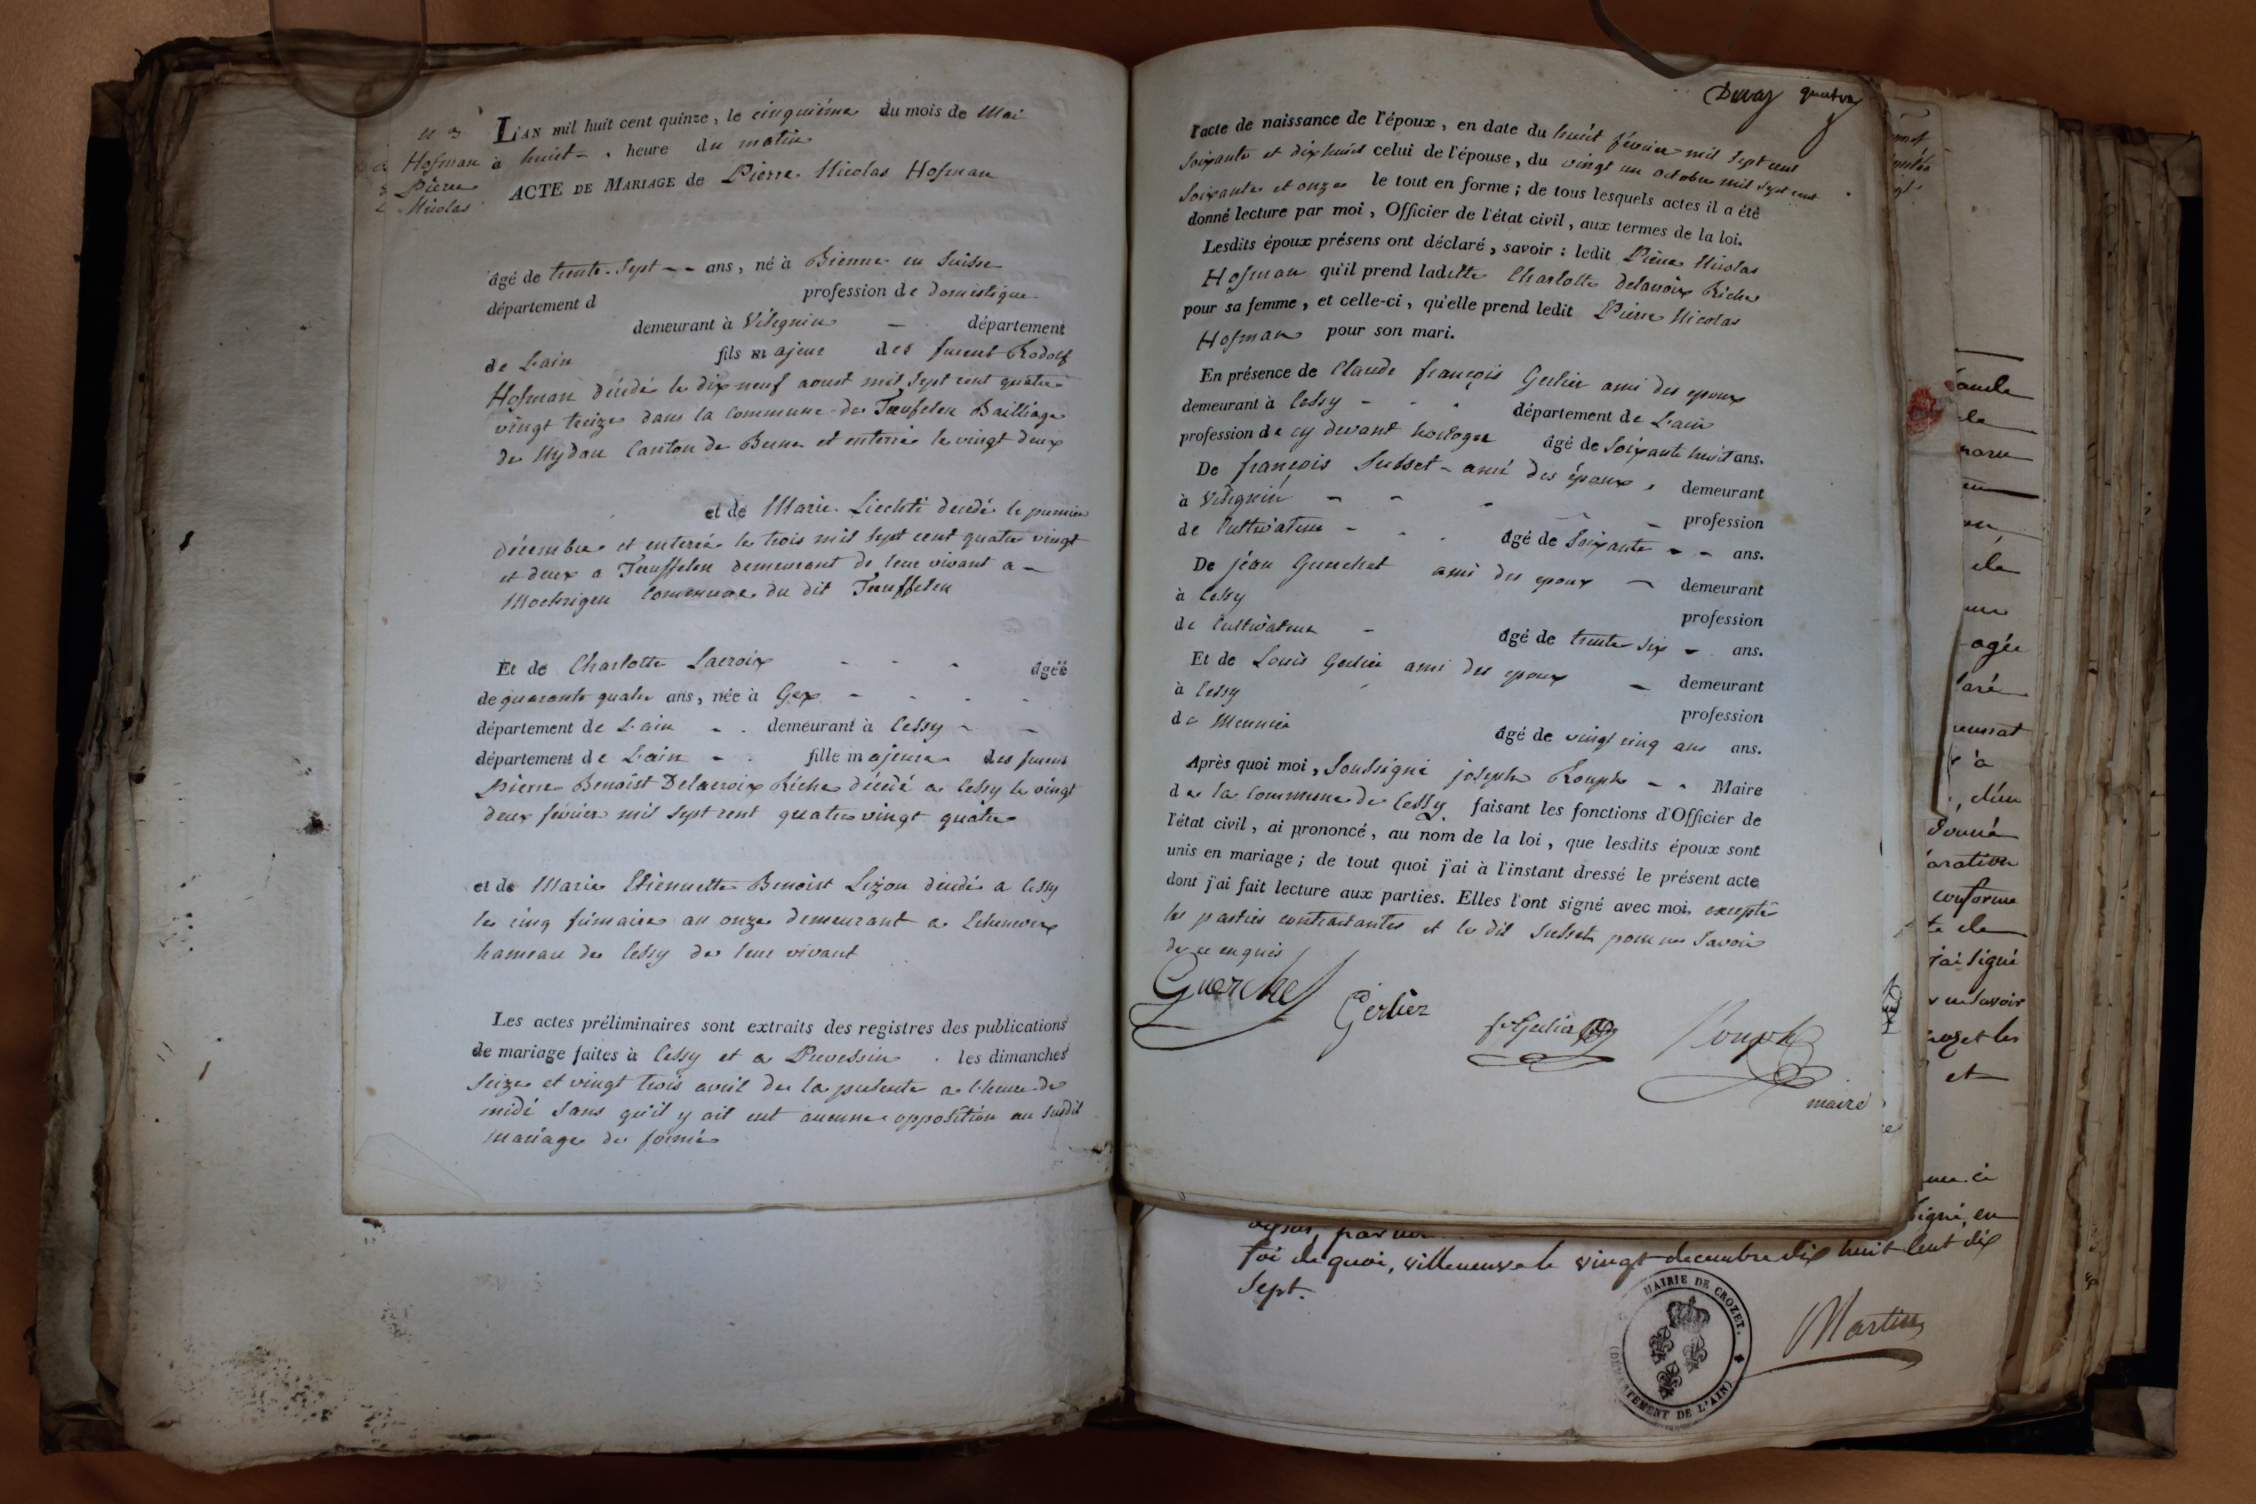 N 3
Hofman
Pierre
Nicolas
L'AN mil huit cent quinze, le cinquième du mois de Mai
à huit heure du matin
ACTE DE MARIAGE de Pierre Nicolas Hofman
âgé de trente-sept ans, né à Bienne en Suisse
département d profession de domestique
demeurant à Vesegnin département
de L'ain fils majeur des furent Rodolf
Hofman décédé le dix neuf aoust mil sept cent quatre
vingt treize dans la commune de Teuffelen Bailliage
de Nydau Canton de Berne et enterré le vingt deux
et de Marie Liechti décédé le premier
décembre et enterré le trois mil sept cent quatre vingt
et deux a Teuffelen demeurant de leur vivant a
Moerigen commune du dit Teuffelen
Et de Charlotte Lacroix âgée
de quarante quatre ans, née à Gex
département de L'ain demeurant à Cessy
département de L'ain fille majeure des furent
Pierre Benoist Delacroix Riche décédé a Cessy le vingt
deux février mil sept cent quatre vingt quatre
et de Marie Etiennette Benoist Lizon décédé a Cessy
le cinq frimaire an onze demeurant a
hameau de Cessy de leur vivant
Les actes préliminaires sont extraits des registres des publications
de mariage faites à Cessy et a Prevessin les dimanches
seize et vingt trois avril de la presente a l'heure de
midi sans qu'il y ait eut aucune opposition au susdit
mariage de formé
l'acte de naissance de l'époux, en date du huit février mil sept cent
soixante et dix huit celui de l'épouse, du vingt un octobre mil sept cent
soixante et onze le tout en forme; de tous lesquels actes il a été
donné lecture par moi, Officier de l'état civil, aux termes de la loi.
Lesdits époux présens ont déclaré, savoir : ledit Pierre Nicolas
Hofman qu'il prend ladette Charlotte delacroix Riche
pour sa femme, et celle-ci, qu'elle prend ledit Pierre Nicolas
Hofman pour son mari.
En présence de Claude françois Gerlier ami des epoux
demeurant à Cessy département de L'ain
profession de cy devant horloger âgé de soixante huit ans.
De françois Susset ami des époux, demeurant
à Vesegnin profession
de Cultivateur âgé de soixante ans.
De jéan Guerchet ami des epoux demeurant
à Cessy profession
de Cultivateur âgé de trente six ans.
Et de Louis Gerlier ami des epoux demeurant
à Cessy profession
de Meunier âgé de vingt cinq ans ans.
Après quoi moi, Soussigné joseph Rouph Maire
de la commune de Cessy faisant les fonctions d'Officier de
l'état civil, ai prononcé, au nom de la loi, que lesdits époux sont
unis en mariage; de tout quoi j'ai à l'instant dressé le présent acte
dont j'ai fait lecture aux parties. Elles l'ont signé avec moi, excepté
les parties contractantes et le dit Susset pour ne savoir
de ce enquis
Guerchet
Gerlier
fs Gerlier
Rouph
maire
foi de quoi, villeneuve le vingt decembre dix huit cent dix
sept.
MAIRIE DE CROZET.
(DÉPARTEMENT DE L'AIN)
Martin